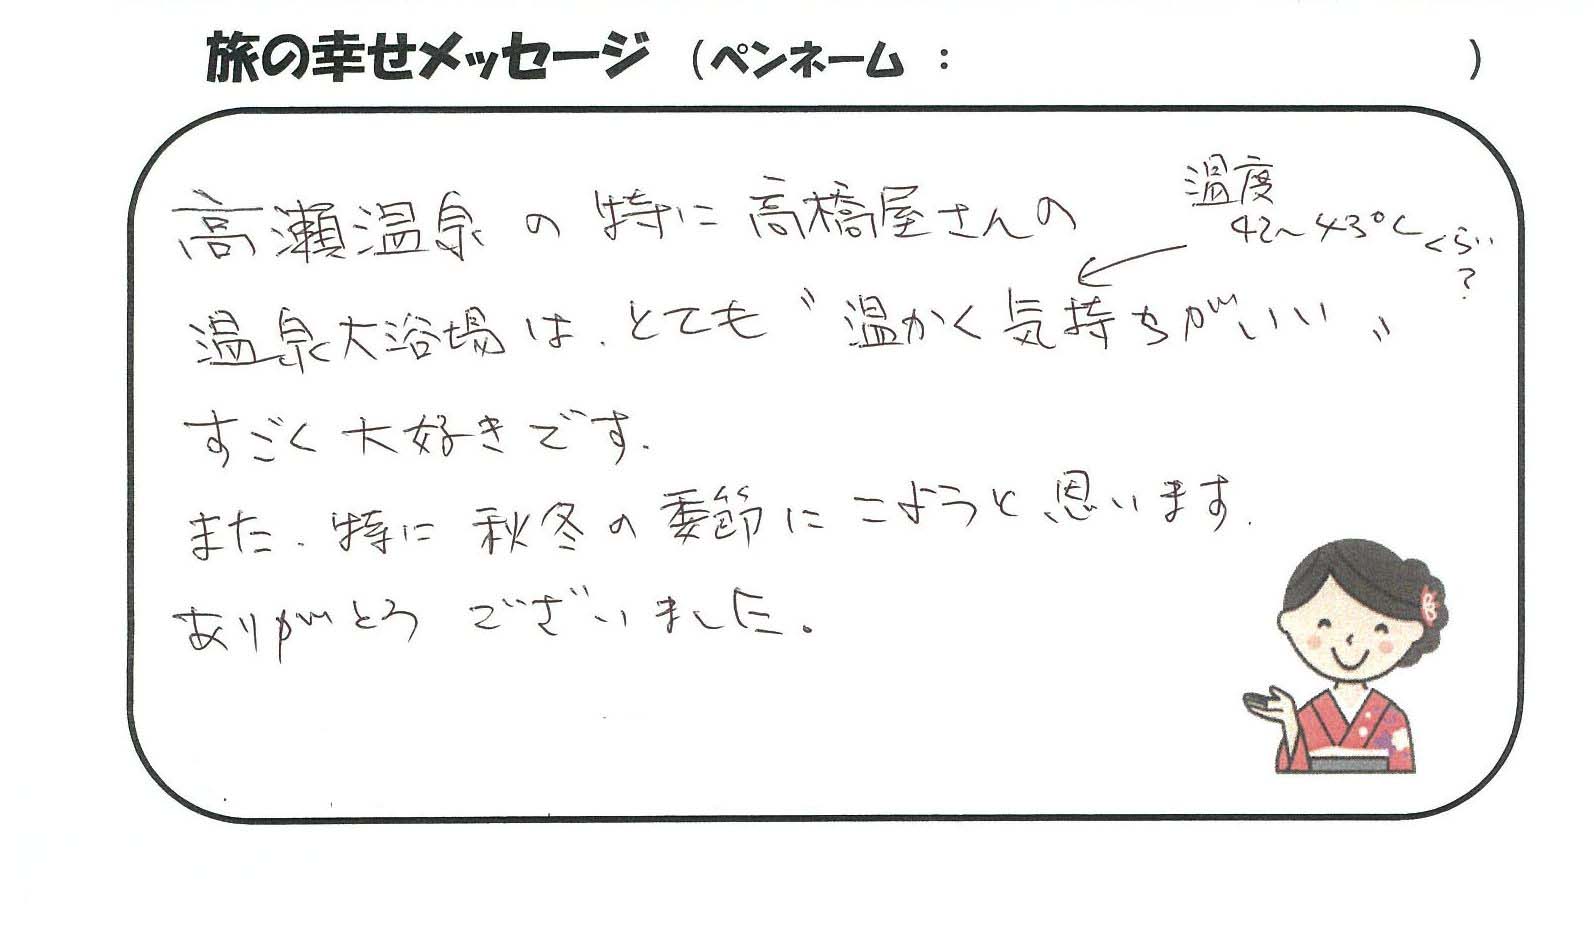 旅の幸せメッセージ（ペンネーム：　　　）
高瀬温泉の特に高橋屋さんの
温度
42〜43℃くらい
?
温泉大浴場は、とても〝温かく気持ちがいい〟
すごく大好きです.
また、特に秋冬の季節にこようと思います.
ありがとうございました。